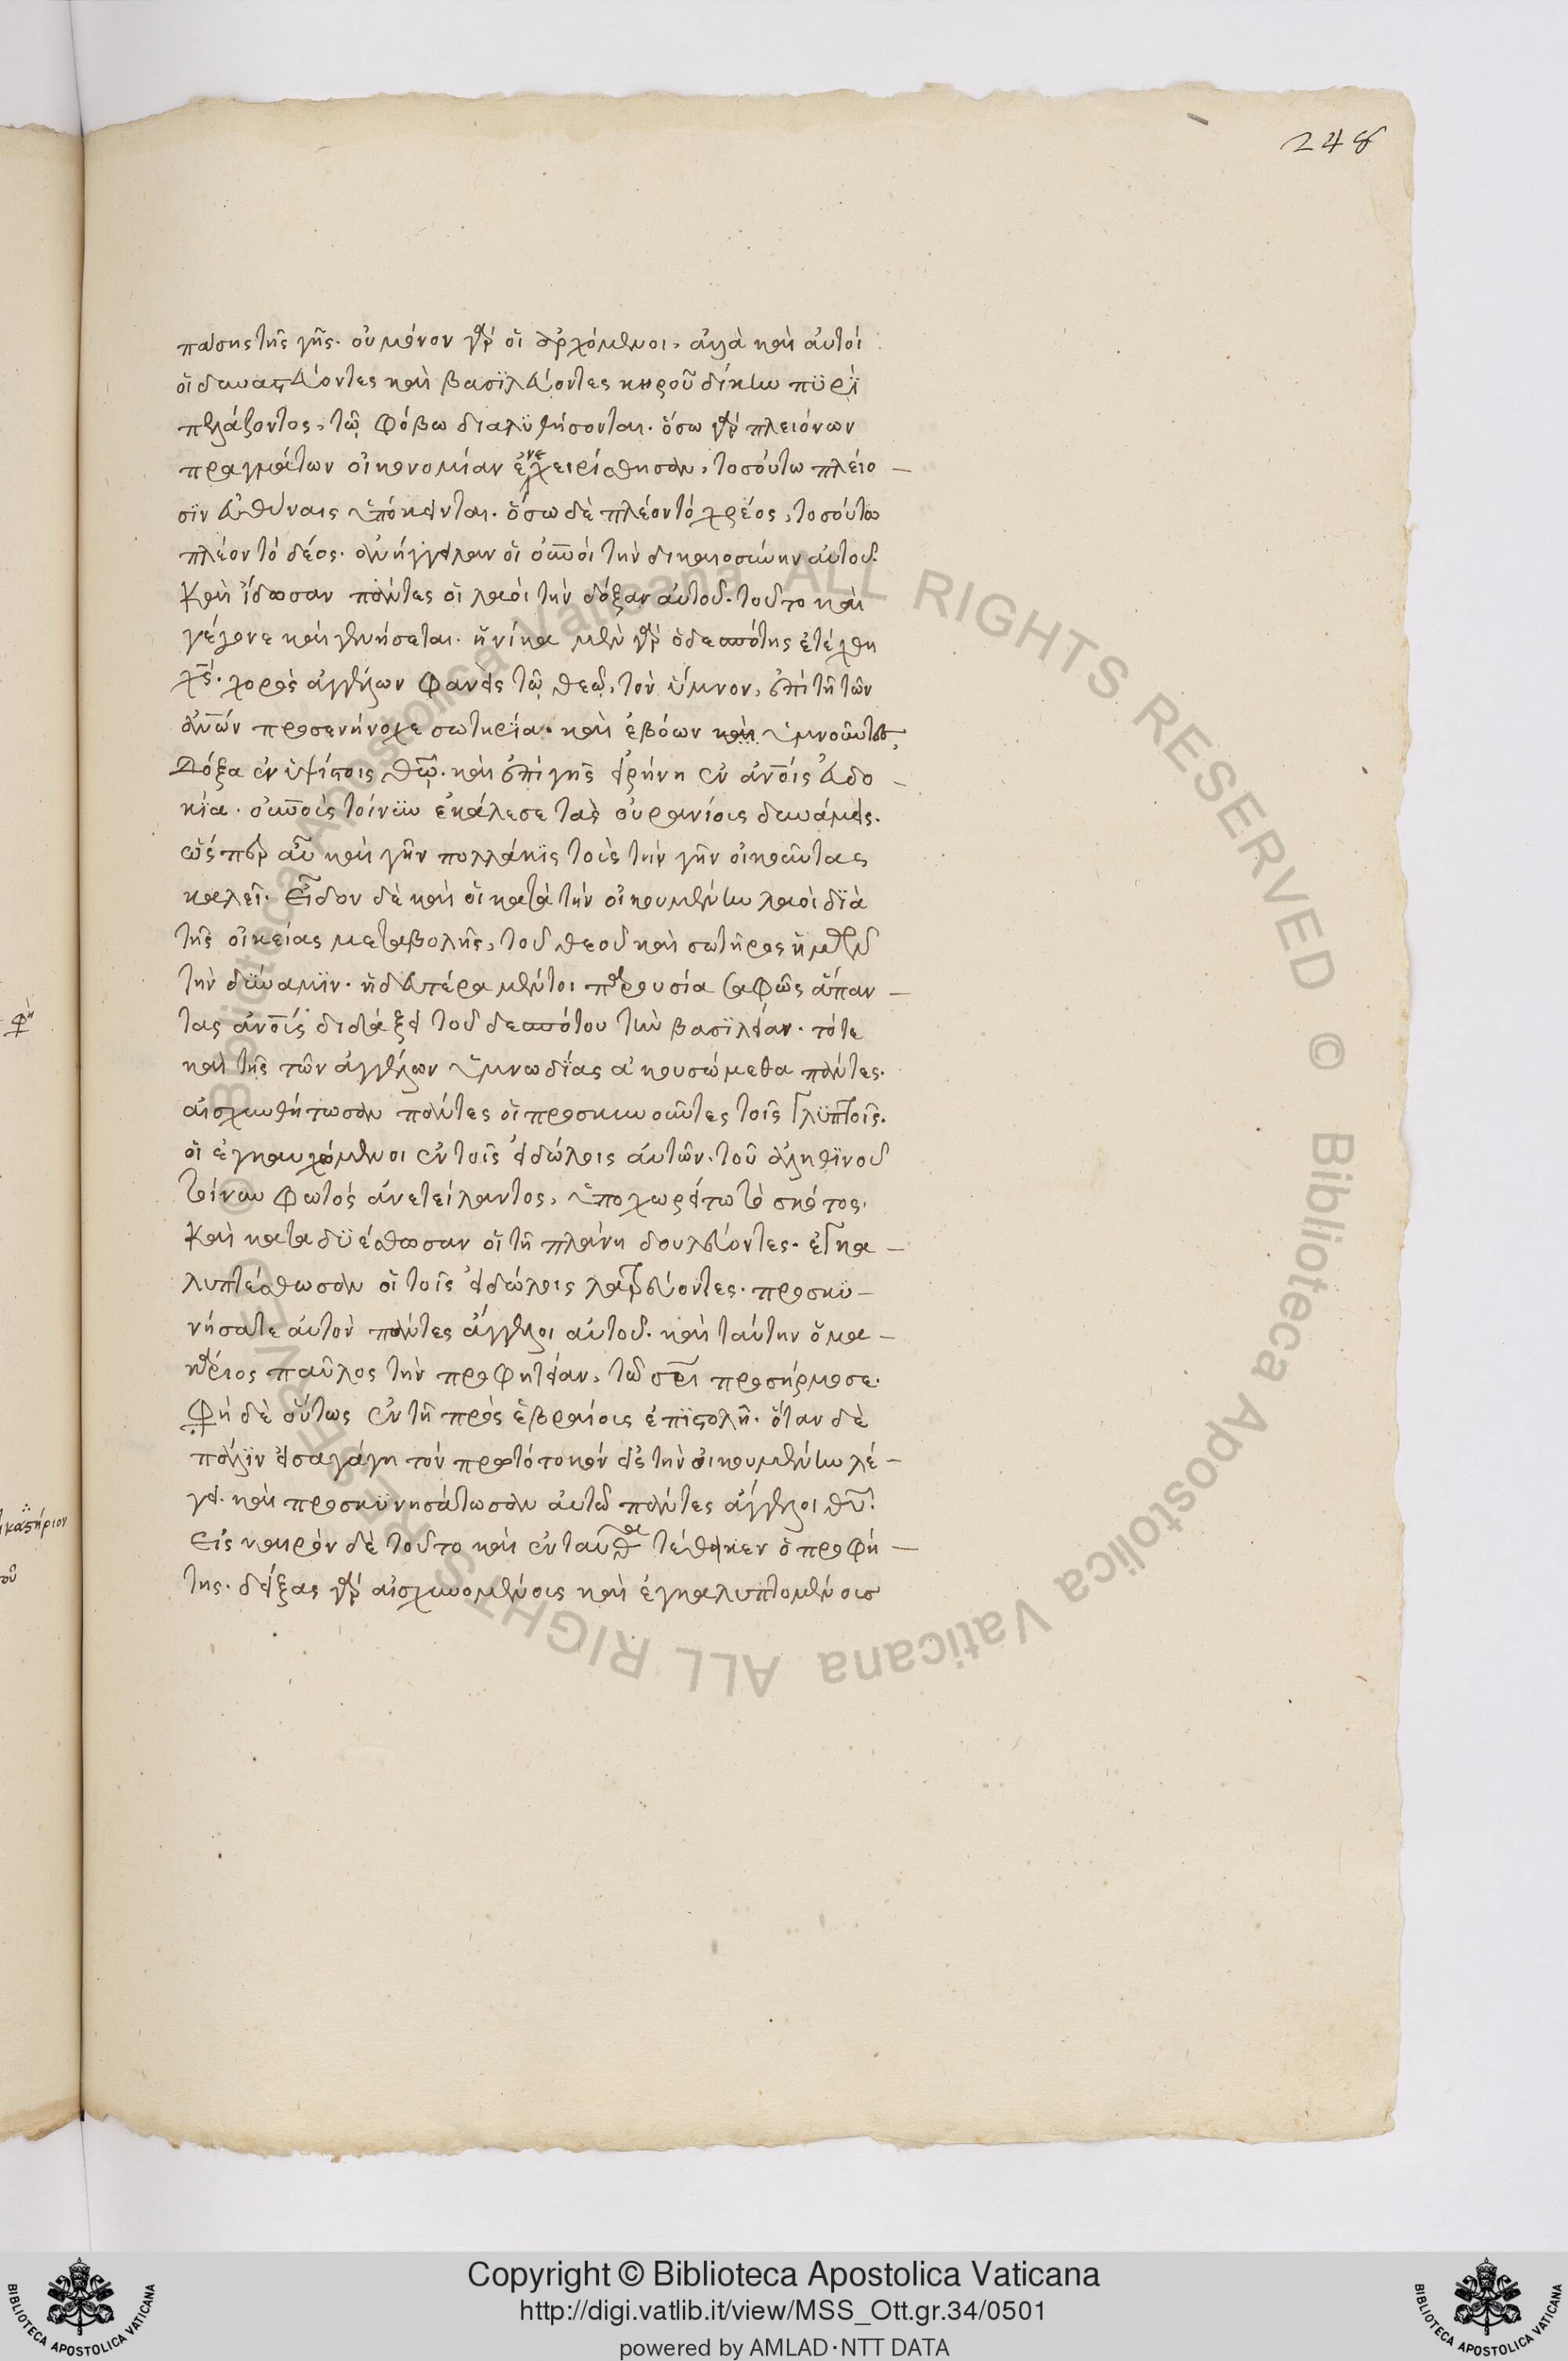 248
πάσης τῆς γῆς. οὐ μόνον γὰρ οἱ ἀρχόμενοι, ἀλλὰ καὶ αὐτοὶ
οἱ δυναστεύοντες καὶ βασϊλεύοντες κηροῦ δίκην πϋρὶ
πελάζοντος, τῷ φόβω διαλϋθήσονται. ὅσω γὰρ πλειόνων
πραγμάτων οἰκονομίαν ἐνεχειρίσθησαν, τοσούτω πλείο –
σϊν εὐθύναις ὑπόκεινται. ὅσω δὲ πλέον τὸ χρέος, τοσούτω
πλέον τὸ δέος. ἀνήγγειλαν οἱ οὐνοὶ τὴν δικαιοσύνην αὐτοῦ.
Καὶ ἴδωσαν πάντες οἱ λαοὶ τὴν δόξαν αὐτοῦ. τοῦτο καὶ
γέγονε καὶ γενήσεται. ἡνίκα μὲν γὰρ ὁ δεσπότης ἐτέχθη
χς. χορὸς ἀγγέλων φανεὶς τῷ θεῷ, τὸν ὕμνον, ἐπὶ τῆ τῶν
ἀνῶν προσενήνοχε σωτηρία. καὶ ἐβόων καὶ ὑμνοῦντες,
Δόξα ἐν ὑψίστοις θῶ. καὶ ἐπὶ γῆς εἰρήνη ἐν ἀνοῖς εὐδο –
κία. οὐνοὺς τοίνϋν ἐκάλεσε τὰς οὐρανίους δυνάμεις.
ὥσπερ αὖ καὶ γῆν πολλάκϊς τοὺς τὴν γῆν οἰκοῦντας
καλεῖ. Εἶδον δὲ καὶ οἱ κατὰ τὴν οἰκουμένην λαοὶ δϊὰ
τῆς οἰκείας μεταβολῆς, τοῦ θεοῦ καὶ σωτῆρος ἡμῶν
τὴν δϋναμϊν. ἡ δευτέρα μέντοι παρουσία σαφῶς ἅπαν –
τας ἀνοὺς διδάξει τοῦ δεσπότου τὴν βασϊλείαν. τότε
καὶ τῆς τῶν ἀγγέλων ὑμνωδίας ἀκουσώμεθα πάντες.
αἰσχυνθήτωσαν πάντες οἱ προσκυνοῦντες τοῖς γλϋπτοῖς.
οἱ ἐγκαυχόμενοι ἐν τοῖς εἰδώλοις αὐτῶν. τοῦ ἀληθϊνοῦ
τοίνυν φωτὸς ἀνατείλαντος, ὑποχωρείτω τὸ σκότος.
Καὶ καταδϋέσθωσαν οἱ τῆ πλάνη δουλεύοντες. ἐγκα –
λυπτέσθωσαν οἱ τοῖς εἰδώλοις λατρεύοντες. προσκϋ –
νήσατε αὐτὸν πάντες ἄγγελοι αὐτοῦ. καὶ ταύτην ὁ μα –
κάριος παῦλος τὴν προφητείαν, τῶ σρι προσήρμοσε.
Φη δὲ οὕτως ἐν τῆ πρὸς ἑβραίους ἐπϊστολῆ. ὅταν δὲ
πάλϊν εἰσαγάγη τὸν πρωτότοκον εἰς τὴν οἰκουμένην λέ –
γει. καὶ προσκϋνησάτωσαν αὐτῶ πάντες ἄγγελοι θυ.
Εἰς καιρὸν δὲ τοῦτο καὶ ἐνταῦθα τέθεικεν ὁ προφή –
της. δείξας γὰρ αἰσχυνομένους καὶ ἐγκαλυπτομένους
Copyright © Biblioteca Apostolica Vaticana
http://digi.vatlib.it/view/MSS_Ott.gr.34/0501
powered by AMLAD·NTT DATA